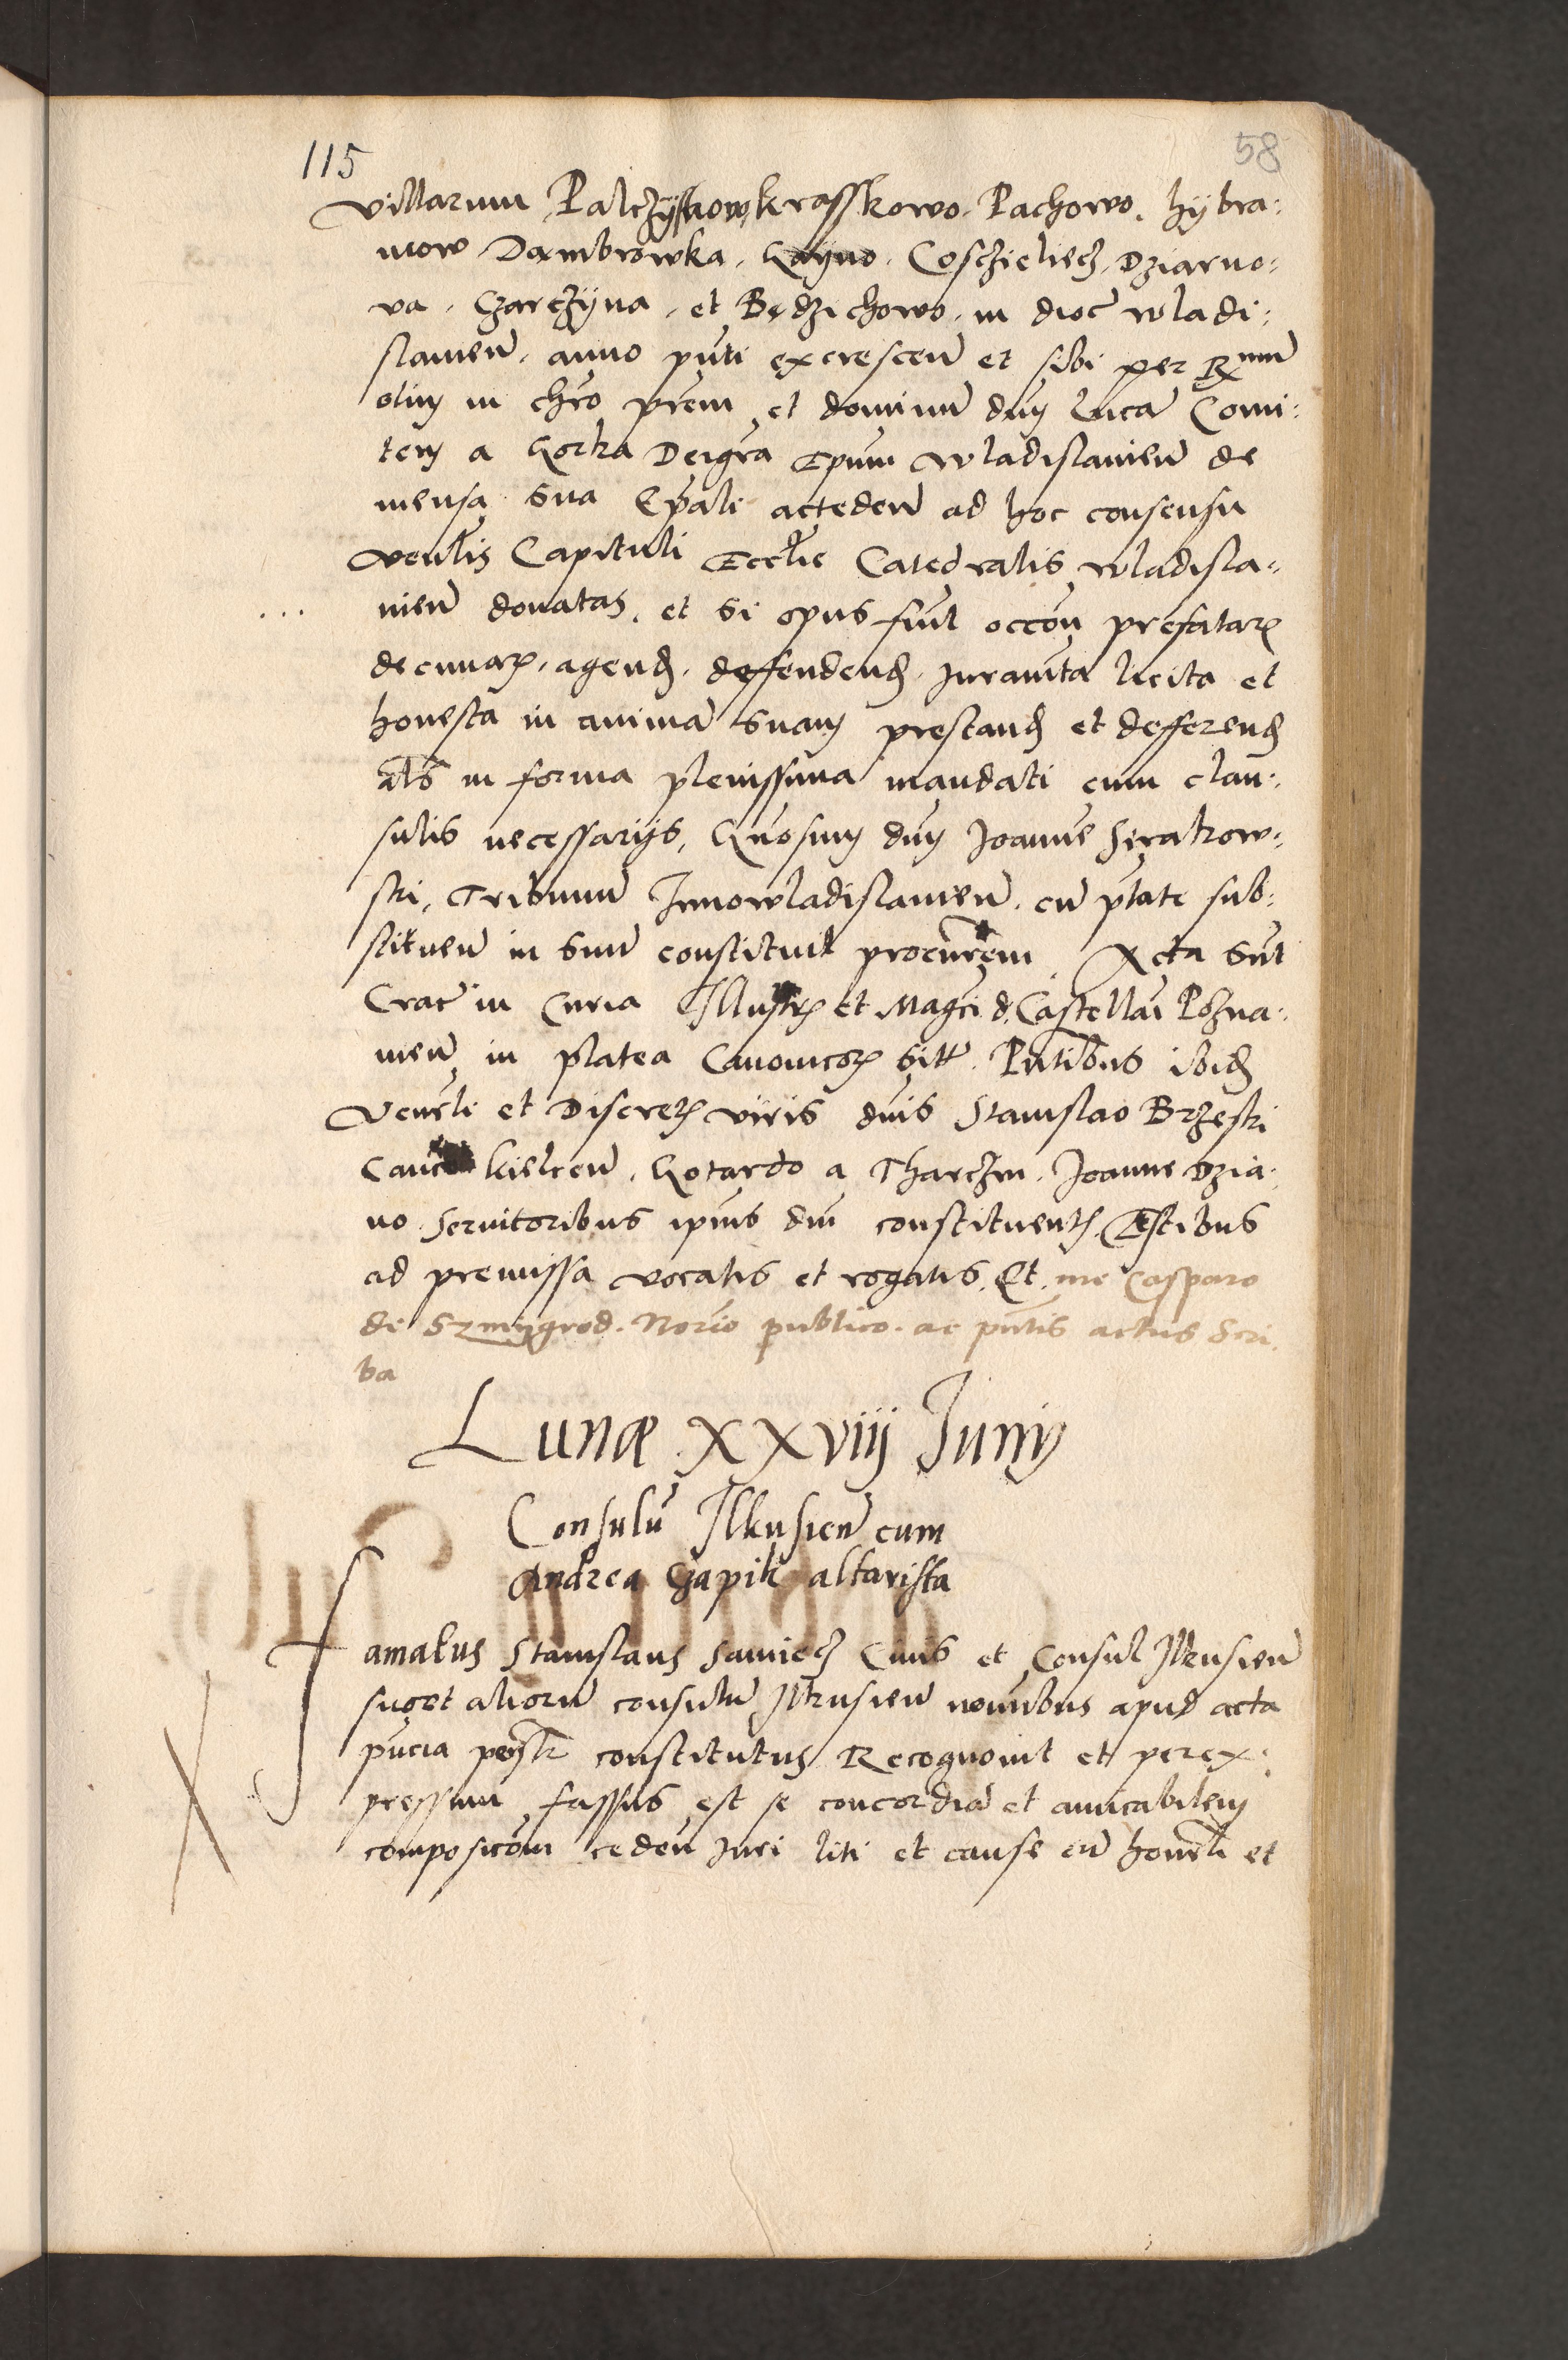 115
58
villarum Palczÿskow, krasskowo. Pachowo. hÿbra:
mow Dambrowka. Gaÿno. Cosczieliecz. Dziarno:
va. Czarczÿna. et Bądzichowo. in dioc̄ wladi:
slauien̄. anno pn̄ti excrescen̄ et sibi per Rmum
olim in chr̄o prēm et dominū dn̄m Lucā Comi:
tem a Gorka Dei gr̄a Ep̄um Wladislauien̄ de
mensa sua Ep̄ali acceden̄ ad hoc consensu
ven̄lis Capituli Eccl̄ie Catedralis wladisla=
uien̄ donatas. et si opus fūit occōn prefatarꝫ
decimarꝫ. agendꝫ. deffendendꝫ. Iuramn̄ta licita et
honesta in animā suam prestandꝫ et defferendꝫ
al̄s in forma plenissima mandati cum clau:
sulis necessarijs, G̃nosum dn̄m Joannē Sierakow:
ski, Tribunū Junowladislauien̄. cū p̄tate sub:
stituen̄ in suū constituit procur̄em. Acta sūt
Crac̄ in Curia Illustrꝫ et Magc̄i d. Castellāi Pozna:
nien̄ in platea Canonicorꝫ sitꝫ. Pn̄tibus ibidꝫ
Ven̄rli et Discretꝫ viris dn̄is Stanislao Brzeski
Canco kielcen̄. Gotardo a Tharczin. Joanne Dzia:
no Seruitoribus ip̄ius dn̄i constituentꝫ. Testibus
ad premissa vocatis et rogatis. Et me Casparo
de Szmÿgrod. Nor̄io publico. ac pn̄tis actus Scri
ba
Lunæ XXVIIJ Junij
Consulū Ilkusien̄ cum
Andrea Czapik altarista
Famatus Stanislaus Samiecz Ciuis et Consul Ilkusien̄
suo et aliorū consulū Ilkusien̄ noīnibus apud acta
pn̄cia persl̄r constitutus Recognouit et per ex:
pressum fassus est se concordiā et amicabilem
composic̄om ceden̄ Iuri liti et cause cū honr̄li et